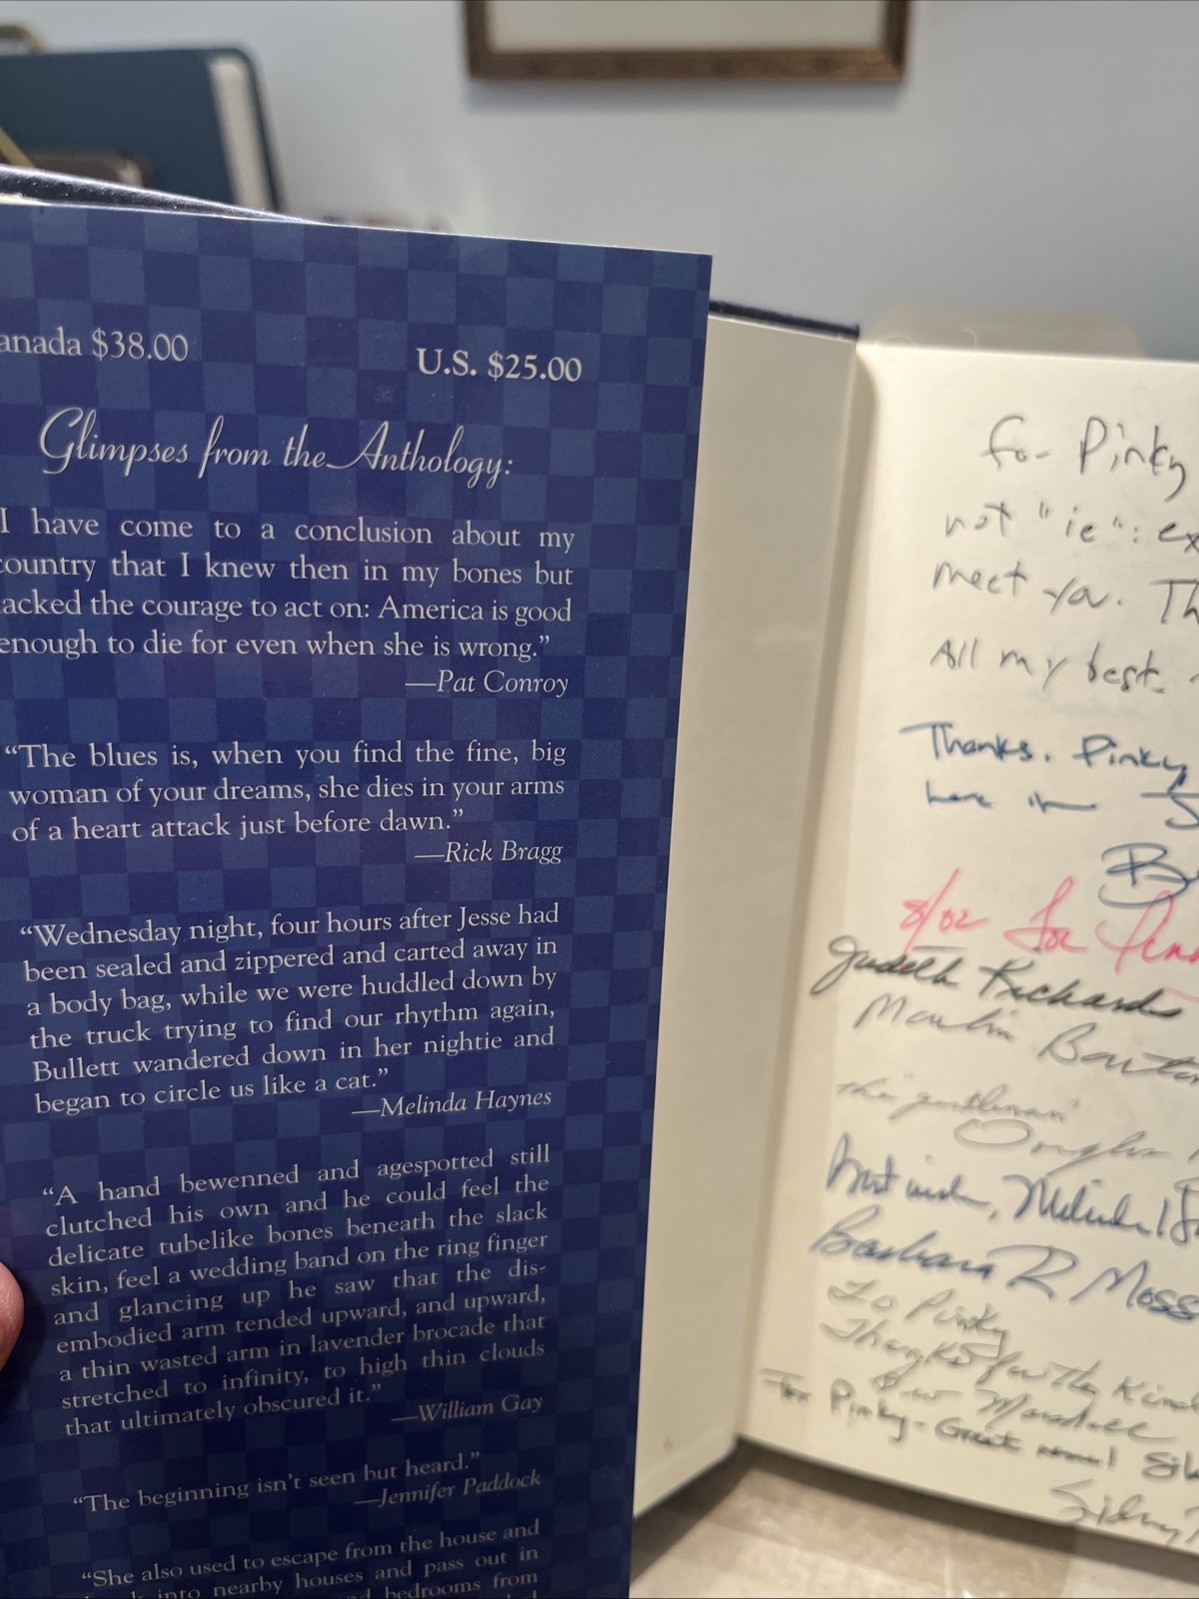 anada $38.00
U.S. $25.00
Glimpses from the Anthology:
I have come to a conclusion about my
country that I knew then in my bones but
lacked the courage to act on: America is good
enough to die for even when she is wrong.”
—Pat Conroy
“The blues is, when you find the fine, big
woman of your dreams, she dies in your arms
of a heart attack just before dawn.”
—Rick Bragg
“Wednesday night, four hours after Jesse had
been sealed and zippered and carted away in
a body bag, while we were huddled down by
the truck trying to find our rhythm again,
Bullett wandered down in her nightie and
began to circle us like a cat.”
—Melinda Haynes
“A hand bewenned and agespotted still
clutched his own and he could feel the
delicate tubelike bones beneath the slack
skin, feel a wedding band on the ring finger
and glancing up he saw that the dis-
embodied arm tended upward, and upward,
a thin wasted arm in lavender brocade that
stretched to infinity, to high thin clouds
that ultimately obscured it.”
—William Gay
“The beginning isn’t seen but heard.”
—Jennifer Paddock
“She also used to escape from the house and
into nearby houses and pass out in
bedrooms from
For Pinky
not "ie": ex
meet you. Th
All my best.
Thanks, Pinky,
8/02 for
Judith Richards
Marlin Barton
The "gentleman"
Douglas
Best wishes, Melinda
Barbara R Moss
To Pinky
Thanks for the Kind
For Pinky - Great name!
Sidney